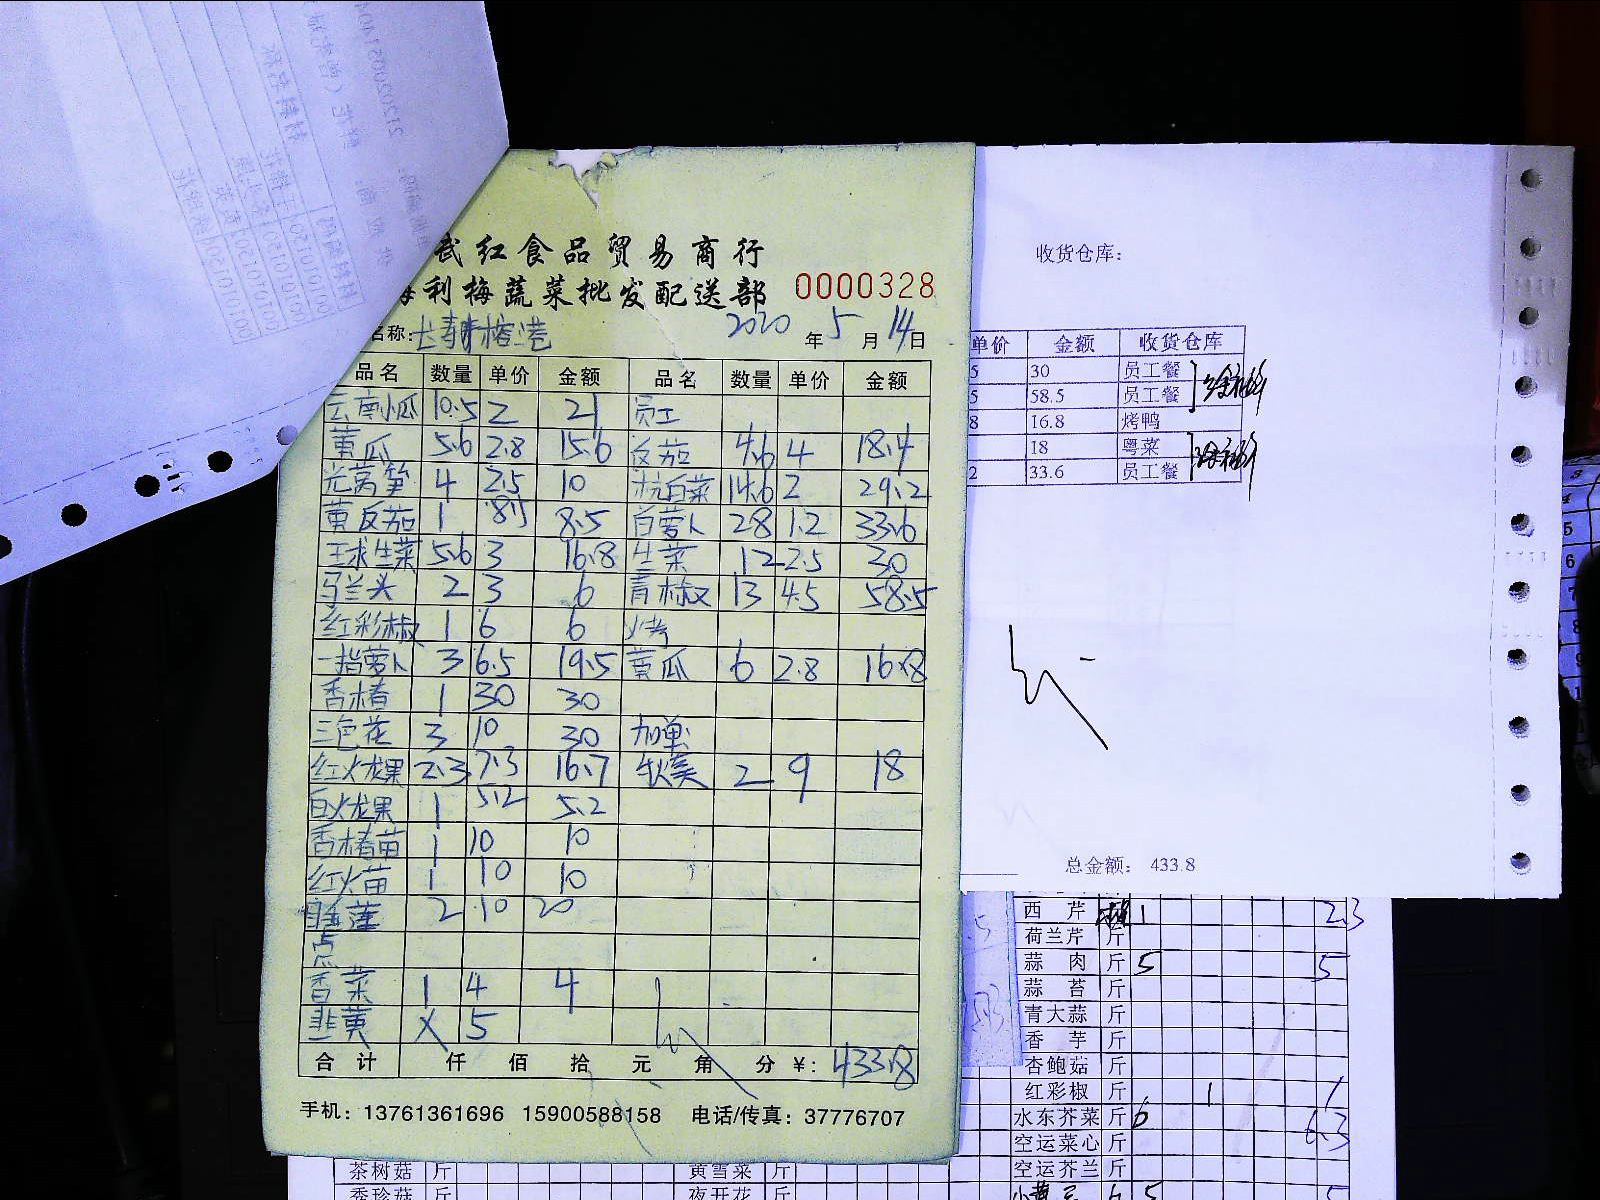 武红食品贸易商行
利梅蔬菜批发配送部 0000328
名称: 2020 年 5 月 14 日
品名 数量 单价 金额 品名 数量 单价 金额
云南小瓜 10.5 2 21 员工
黄瓜 5.6 2.8 15.6 反茄 4.6 4 18.4
光莴笋 4 2.5 10 杭白菜 14.6 2 29.2
黄反茄 1 8.5 8.5 白萝卜 28 1.2 33.6
王求生菜 5.6 3 16.8 生菜 12 2.5 30
马兰头 2 3 6 青椒 13 4.5 58.5
红彩椒 1 6 6 火考
一指萝卜 3 6.5 19.5 黄瓜 6 2.8 16.8
香椿 1 30 30
三色花 3 10 30 加单
红火龙果 2.3 7.3 16.7 2 9 18
白火龙果 1 5.2 5.2
香椿苗 1 10 10
红火苗 1 10 10
睡莲 2 10 20
点
香菜 1 4 4
韭黄 X 5
合计 仟 佰 拾 元 角 分 ¥: 433.8
手机: 13761361696 15900588158 电话/传真: 37776707
收货仓库:
单价 金额 收货仓库
5 30 员工餐
5 58.5 员工餐
8 16.8 烤鸭
18 粤菜
2 33.6 员工餐
总金额: 433.8
西芹 1 2.3
荷兰芹 斤
蒜肉 斤 5 5
蒜苔 斤
青大蒜 斤
香芋 斤
杏鲍菇 斤
红彩椒 斤 1 1
水东芥菜 斤 6 6.3
空运菜心 斤
空运芥兰 斤
茶树菇 斤 黄雪菜 斤
秀珍菇 斤 夜开花 斤